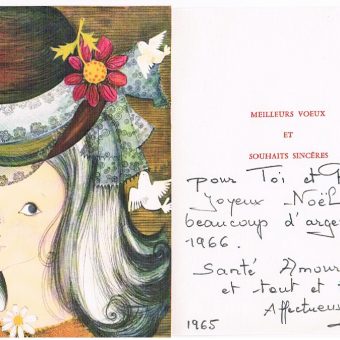 MEILLEURS VOEUX
ET
SOUHAITS SINCÈRES
pour Toi et
Joyeux Noël
beaucoup d'arge
1966.
Santé Amour
et tout et
Affectueus
1965